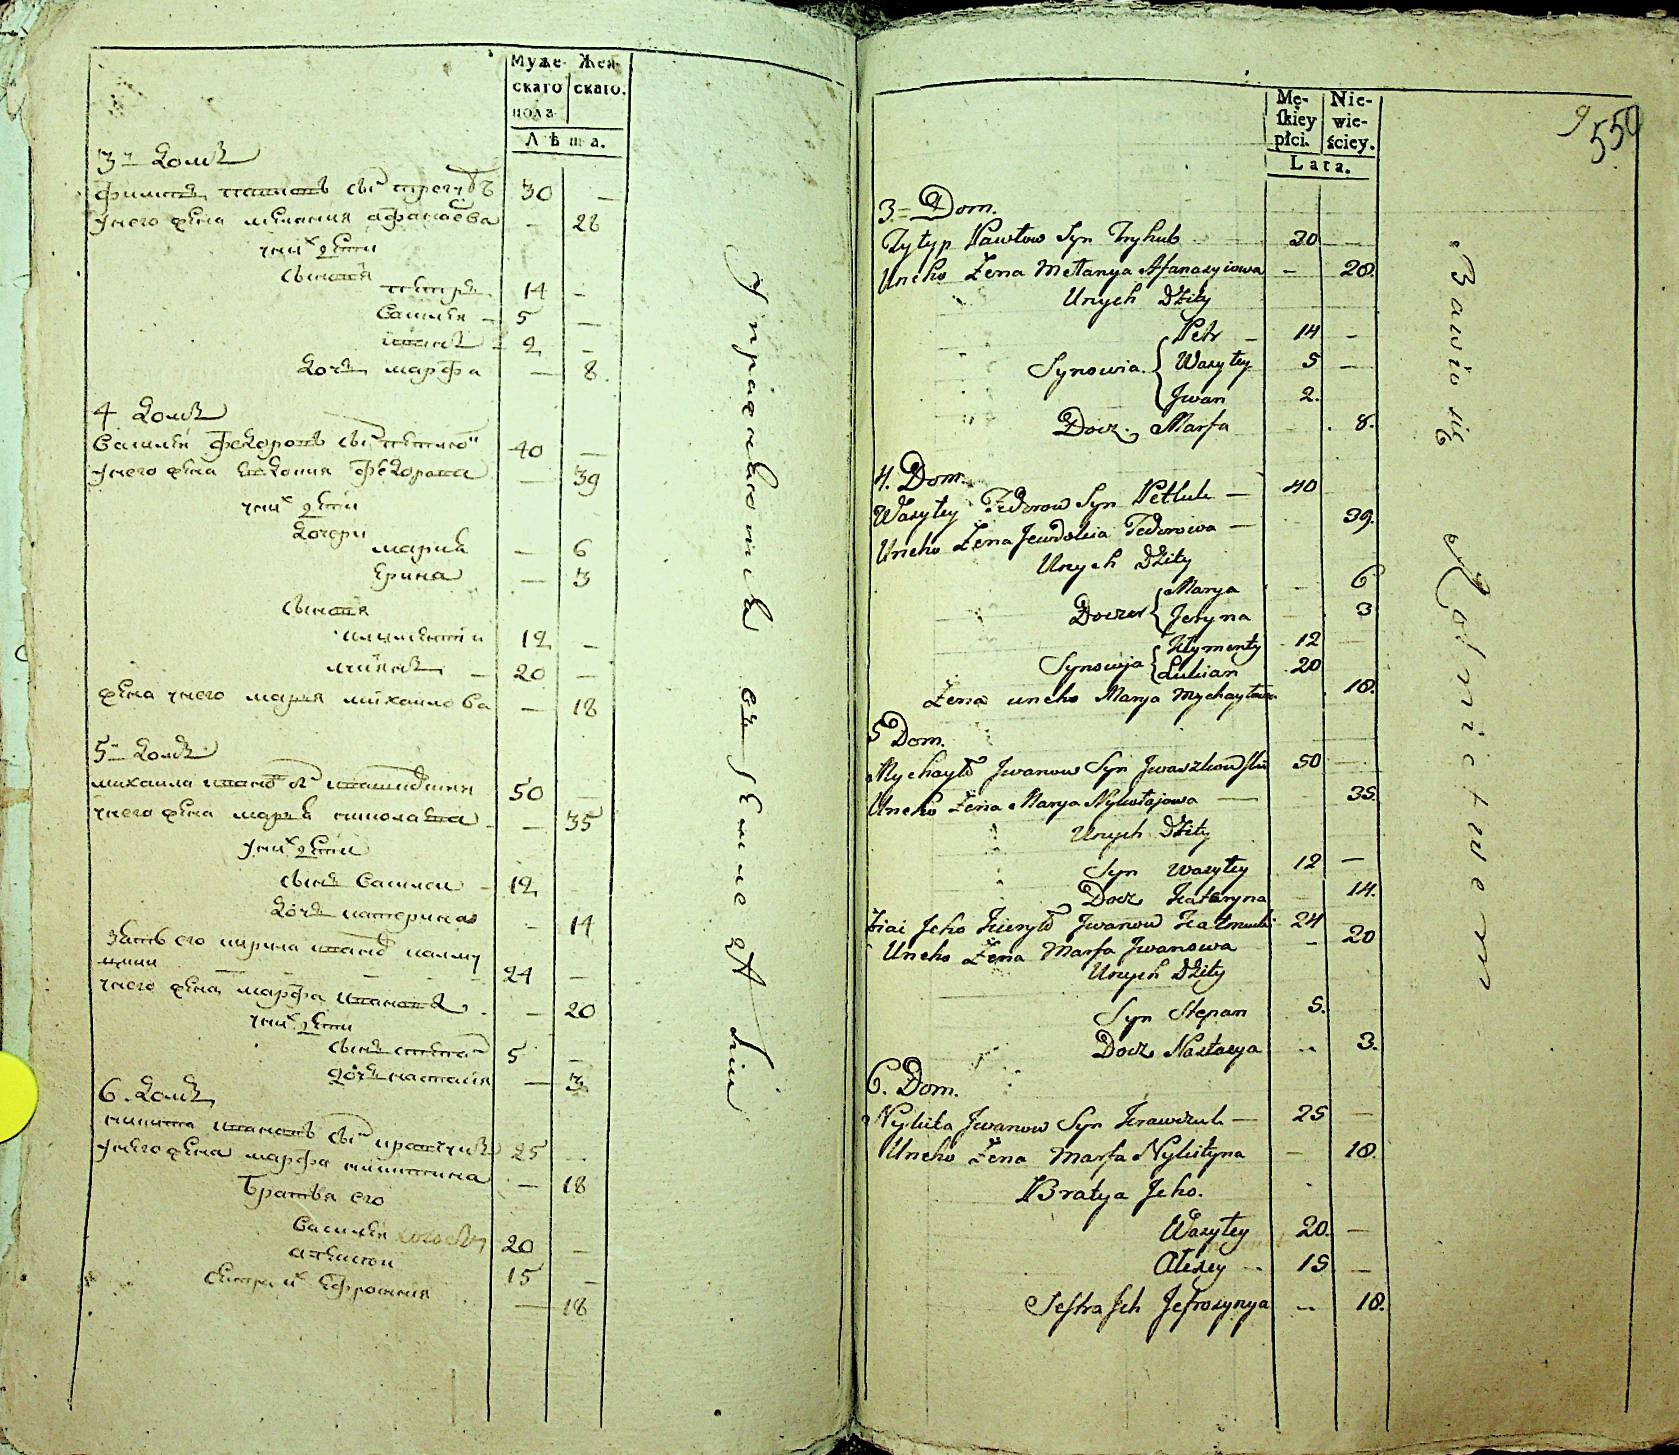 Муже-
скаго
пола
Жен-
скаго.
Лѣта.
3й Домъ
сынъ трегубъ 30 —
унего жена мелания афанасева — 28
унихъ дети
сыновя
петръ 14 —
Василей — 5 —
иванъ — 2 —
Дочъ марфа — 8.
4 Домъ
Василей Федоровъ сынъ 40 —
унего жена евдокия Федорова — 39
унихъ дети
Дочери
мария — 6
Ерина — 3
сыновя
климентий 12 —
лукянъ — 20 —
жена унего мария михаилова — 18
5й Домъ
михаила иванов сынъ 50
унего жена мария николаева — 35
унихъ дети
сынъ Василей — 12
Дочъ катерина — 14
зять его кирила иванов калму
24 —
унего жена марфа иванова — 20
унихъ дети
сынъ степан 5 —
Дочъ настасия — 3
6. Домъ
никита ивановъ сынъ кравчукъ 25
унего жена марфа никитина — 18
Братья его
Василей 20 —
алексей 15 —
сестра их Ефросиния — 18
Упражняются въ земледѣлии
Mę-
skiey
płci.
Nie-
wie-
ściey.
Lata.
9
550
3. Dom.
Tytyp Pawłow Syn Tryhub 30 —
Uneho Żena Mełanya Afanasyiowa — 28.
Unych Dżity
Petr — 14 —
Synowia { Wasyley 5 —
Jwan 2.
Docz. Marfa 8.
4. Dom.
Wasyley Fedorow Syn Petluk — 40
Uneho Żena Jewdokia Fedorowa — 39.
Unych Dżity
Marya 6
Doczer { Jeryna 3
Kłymenty 12
Synowja { Lukian 20
Żena uneho Marya Mychayłowa 18.
5 Dom.
Mychayło Jwanow Syn Jwaszkowski 50 —
Uneho Żena Marya Nykołajowa — 35.
Unych Dżity
Syn Wasyley 12 —
Docz Kataryna 14.
Ziat Jeho Kieryło Jwanow 24 —
Uneho Żena Marfa Jwanowa — 20
Unych Dżity
Syn Stepan 5.
Docz Nastasya 3.
6. Dom.
Nykita Jwanow Syn Krawczuk — 25 —
Uneho Żena Marfa Nykityna — 18.
Bratya Jeho.
Wasyley 20. —
Alexey 15 —
Sestra Jch Jefrosynya 18.
Bawio się Rolnictwem